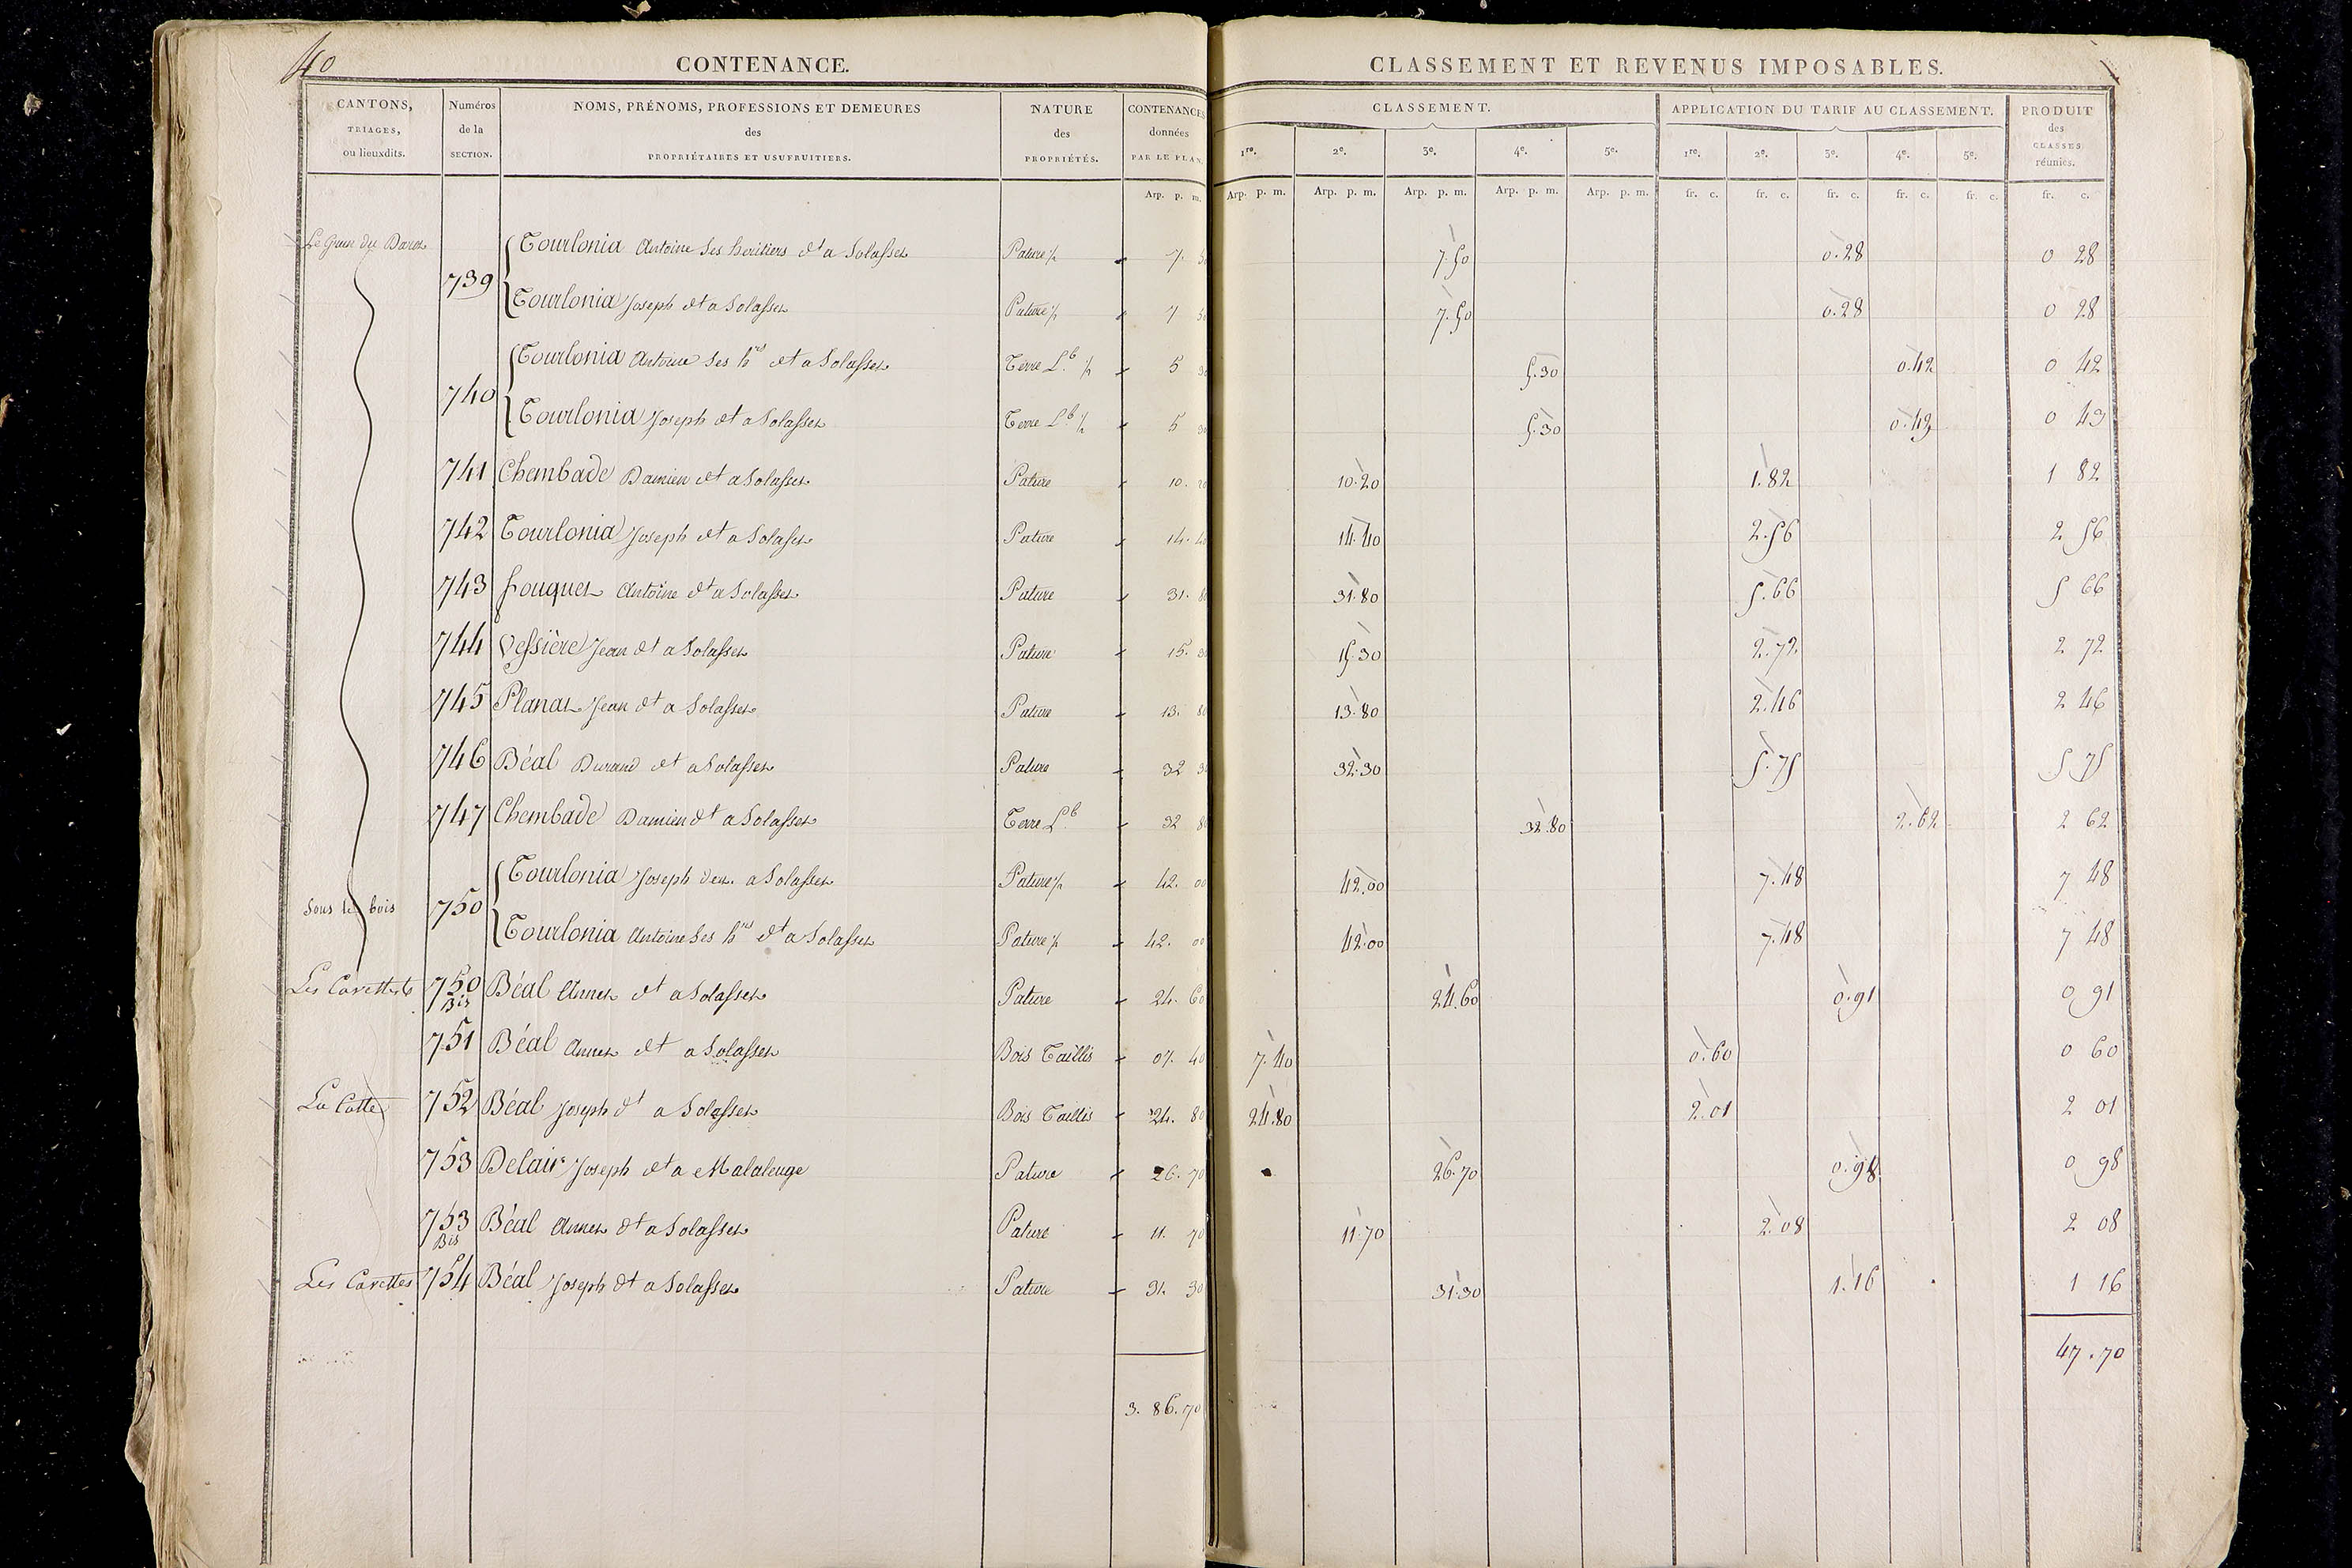 40
CONTENANCE.
CLASSEMENT ET REVENUS IMPOSABLES.
CANTONS, TRIAGES, ou lieuxdits.
Numéros de la SECTION.
NOMS, PRÉNOMS, PROFESSIONS ET DEMEURES des PROPRIÉTAIRES ET USUFRUITIERS.
NATURE des PROPRIÉTÉS.
CONTENANCES données PAR LE PLAN.
CLASSEMENT.
APPLICATION DU TARIF AU CLASSEMENT.
PRODUIT des CLASSES réunies.
1re. 2e. 3e. 4e. 5e. 1re. 2e. 3e. 4e. 5e.
Arp. p. m. Arp. p. m. Arp. p. m. Arp. p. m. Arp. p. m. Arp. p. m. fr. c. fr. c. fr. c. fr. c. fr. c. fr. c.
739 Tourlonia Antoine Ses heritiers dt a Solasses Pature ½ 7. 50 7.50 0.28 0 28
Tourlonia Joseph dt a Solasses Pature ½ 7 50 7.50 0.28 0 28
740 Tourlonia Antoine Ses hrs dt a Solasses Terre Lb. ½ 5 30 5.30 0.42 0 42
Tourlonia Joseph dt a Solasses Terre Lb. ½ 5 30 5.30 0.43 0 43
741 Chembade Damien dt a Solasses Pature 10. 20 10.20 1.82 1 82
742 Tourlonia Joseph dt a Solasses Pature 14. 40 14.40 2.56 2 56
743 fouques Antoine dt a Solasses Pature 31. 80 31.80 5.66 5 66
744 Vessière Jean dt a Solasses Pature 15. 30 15.30 2.72 2 72
745 Planas Jean dt a Solasses Pature 13. 80 13.80 2.46 2 46
746 Béal Durand dt a Solasses Pature 32 30 32.30 5.75 5 75
747 Chembade Damien dt a Solasses Terre Lb. 32 80 32.80 2.62 2 62
Sous le bois 750 Tourlonia Joseph a Solasses Pature ½ 42. 00 42.00 7.48 7 48
Tourlonia Antoine Ses hrs dt a Solasses Pature ½ 42. 00 42.00 7.48 7 48
750 Bis Béal Annes dt a Solasses Pature 24. 60 24.60 0.91 0 91
751 Béal Annes dt a Solasses Bois Taillis 07. 40 7.40 0.60 0 60
La Cotte 752 Béal Joseph dt a Solasses Bois Taillis 24. 80 24.80 2.01 2 01
753 Delair Joseph dt a Malaleuge Pature 26. 70 26.70 0.98 0 98
753 Bis Béal Annes dt a Solasses Pature 11. 70 11.70 2.08 2 08
Les Carettes 754 Béal Joseph dt a Solasses Pature 31. 30 31.30 1.16 1 16
47.70
3. 86. 70